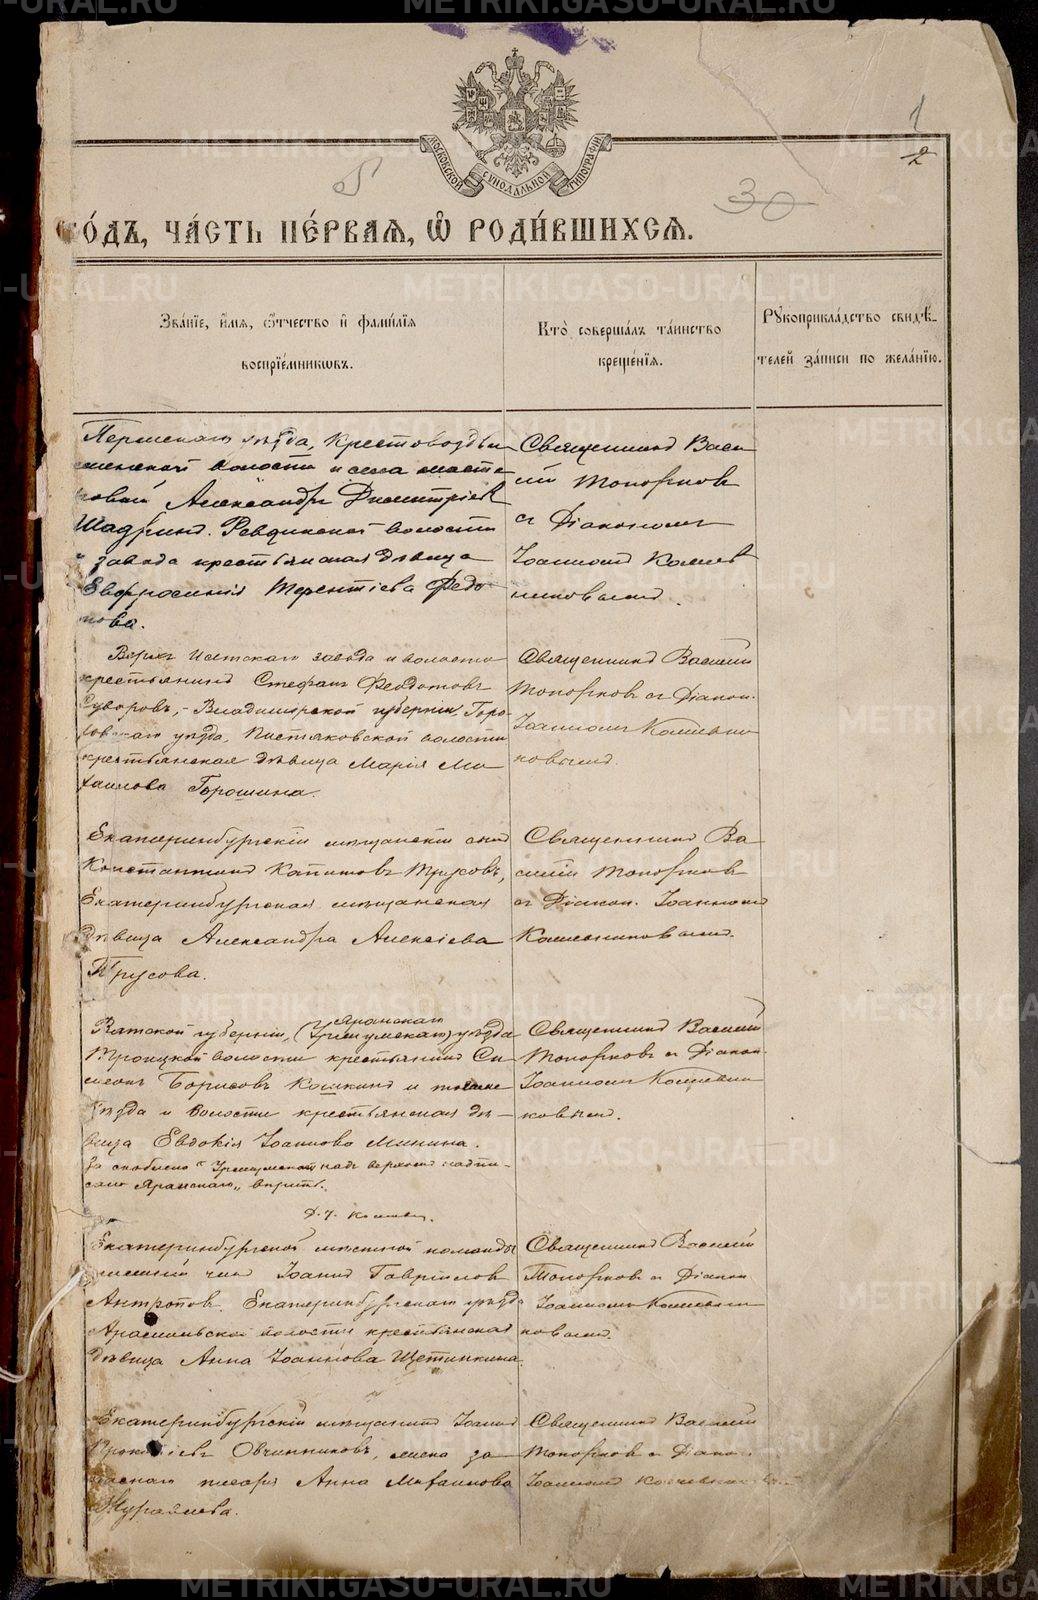 METRIKI.GASO-URAL.RU
1
2
МОСКОВСКОЙ СУНОДАЛЬНОЙ ТИПОГРАФІИ
5
30
го́дъ, ча́сть пе́рваѧ, ѡ҆ роди́вшихсѧ.
Зва́нїе, и҆́мѧ, ѻ҆́тчество и҆ фами́лїѧ
воспрїе́мникѡвъ.
Кто̀ соверша́лъ та́инство
креще́нїѧ.
Рꙋкоприкла́дство свидѣ́-
телей за́писи по жела́нїю.
Пермскаго уѣзда, Крестовоздви
женской волости и села масте
ровой Александръ Димитріев
Шадринъ. Ревдинской волости
и завода крестьянская дѣвица
Евфросинія Терентіева Федо
това.
Священникъ Васи
лій Топорков
съ Діакономъ
Іоанномъ Колчев
никовымъ.
Верхъ Исетскаго завода и волости
крестьянинъ Стефанъ Феодотовъ
Суворовъ, - Владимірской губерніи, Горо
ховскаго уѣзда, Пестяковской волости
крестьянская дѣвица Марія Ми
хаилова Горошина.
Священникъ Василій
Топорковъ съ Діакон.
Іоанномъ Колчевни
ковымъ.
Екатеринбургскій мѣщанскій сынъ
Константинъ Капитоновъ Трусовъ,
Екатеринбургская мѣщанская
дѣвица Александра Алексіева
Трусова.
Священникъ Ва
силій Топорков
съ Діакон. Іоанномъ
Колчевниковымъ.
Яранскаго
Вятской губерніи, (Уржумскаго) уѣзда
Троицкой волости крестьянинъ Си
меонъ Борисовъ Кошкинъ и тогоже
уѣзда и волости крестьянская дѣ-
вица Евдокія Іоаннова Минина.
За скоблено "Уржумскаго" надъ верхомъ надпи-
сано Яранскаго" вѣрить.
Священникъ Василій
Топорковъ съ Діакон.
Іоанномъ Колчевни
ковымъ.
Екатеринбургской мѣстной команды
нижній чинъ Іоаннъ Гавріиловъ
Антропов. Екатеринбургскаго уѣзда
Арамильской волости крестьянская
дѣвица Анна Іоаннова Щетинкина.
Священникъ Василій
Топорков съ Діакон
Іоанномъ Колчевни
ковымъ.
Екатеринбургскій мѣщанинъ Іоаннъ
Прокопіевъ Овчинниковъ, жена за
паснаго писаря Анна Михаилова
Журавлева.
Священникъ Василій
Топорков съ Діакон
Іоанномъ Колчевниковымъ